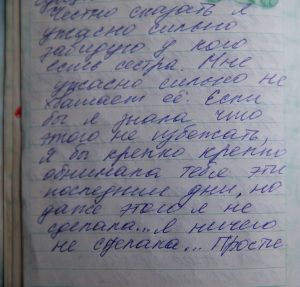 Честно сказать я
ужасно сильно
завидую у кого
есть сестра. Мне
ужасно сильно не
хватает её. Если
бы я знала что
этого не избежать,
Я бы крепко крепко
обнимала тебя эти
последние дни, но
даже этого я не
сделала... я ничего
не сделала... Прости